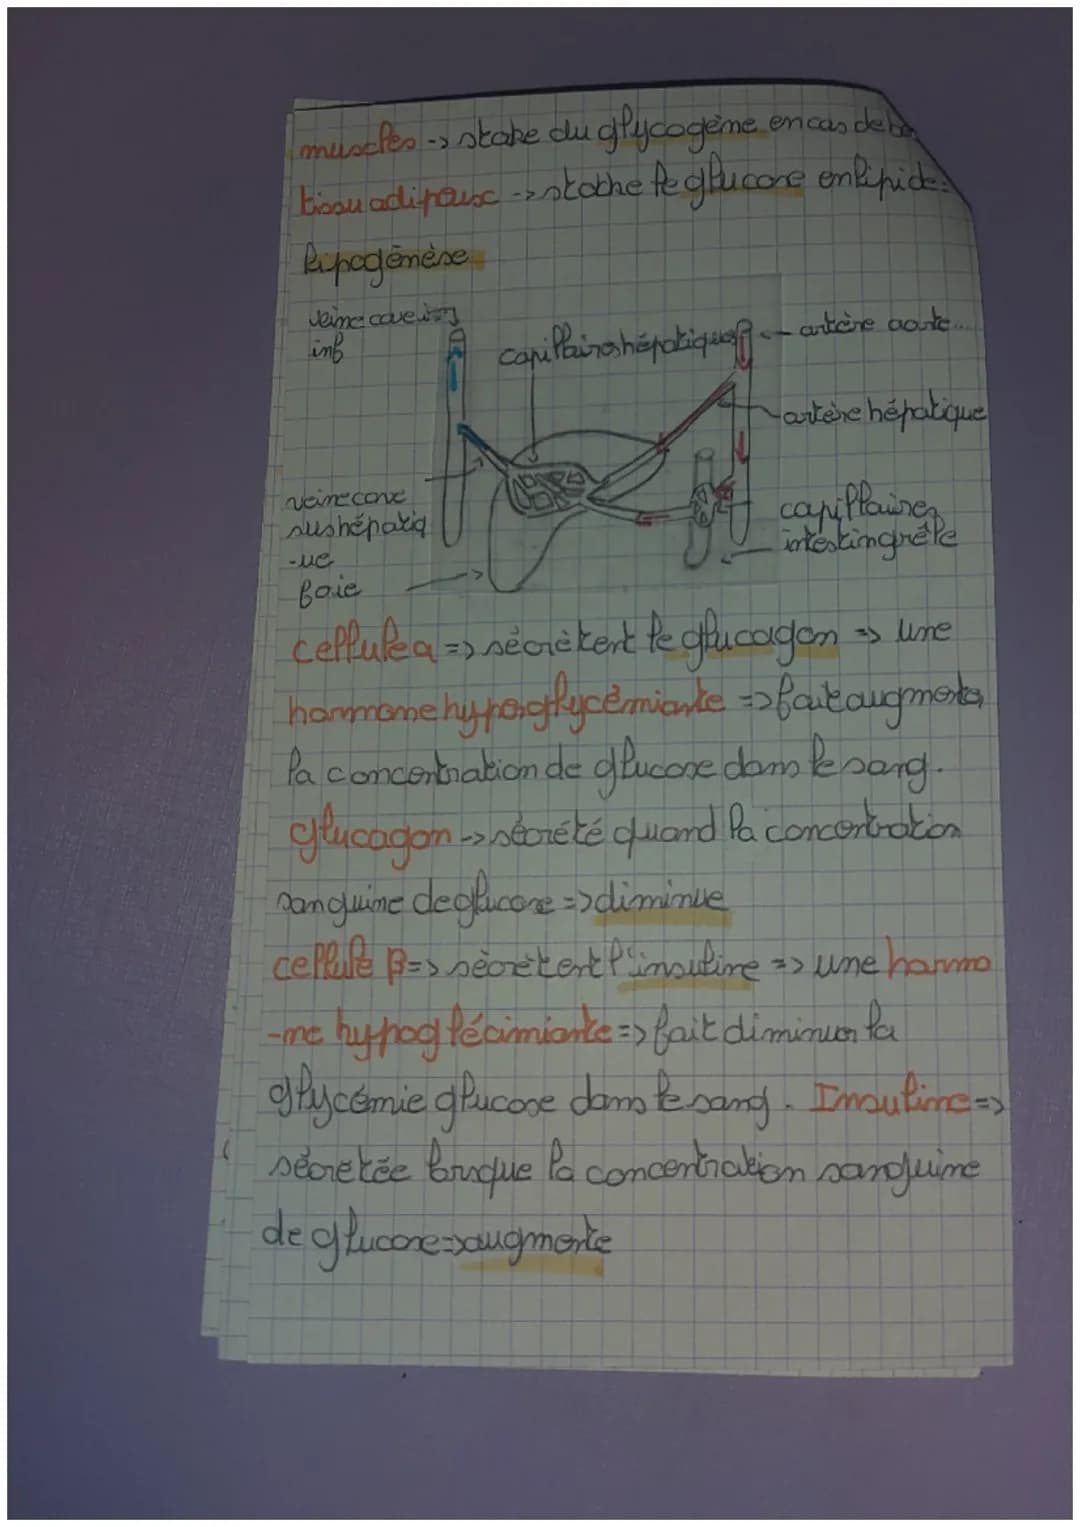 muscles -> stoke du glycogène en cas de be
tissu adipeux -> stocke le glucose en lipide:
lipogénèse
veine cave
inf
capillaires hépatiques
artère aorte
artère hépatique
veine cave
sushépatiq
-ue
foie
capillaires
intestin grêle
cellule a => sécrètent le glucagon => une
hormone hyperglycémiante => fait augmenter
la concentration de glucose dans le sang.
glucagon -> sécrété quand la concentration
sanguine de glucose => diminue
cellule β => sécrètent l'insuline => une hormo
-ne hypoglécimiante => fait diminuer la
glycémie glucose dans le sang. Insuline =>
sécretée lorsque la concentration sanguine
de glucose => augmente